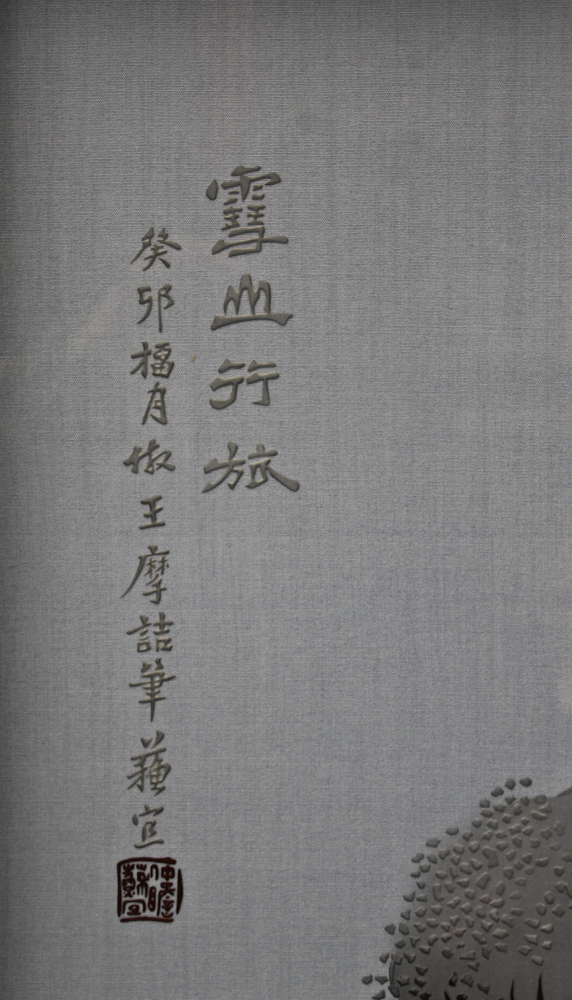 雪山行旅
癸卯月倣王摩詰筆蘓宣